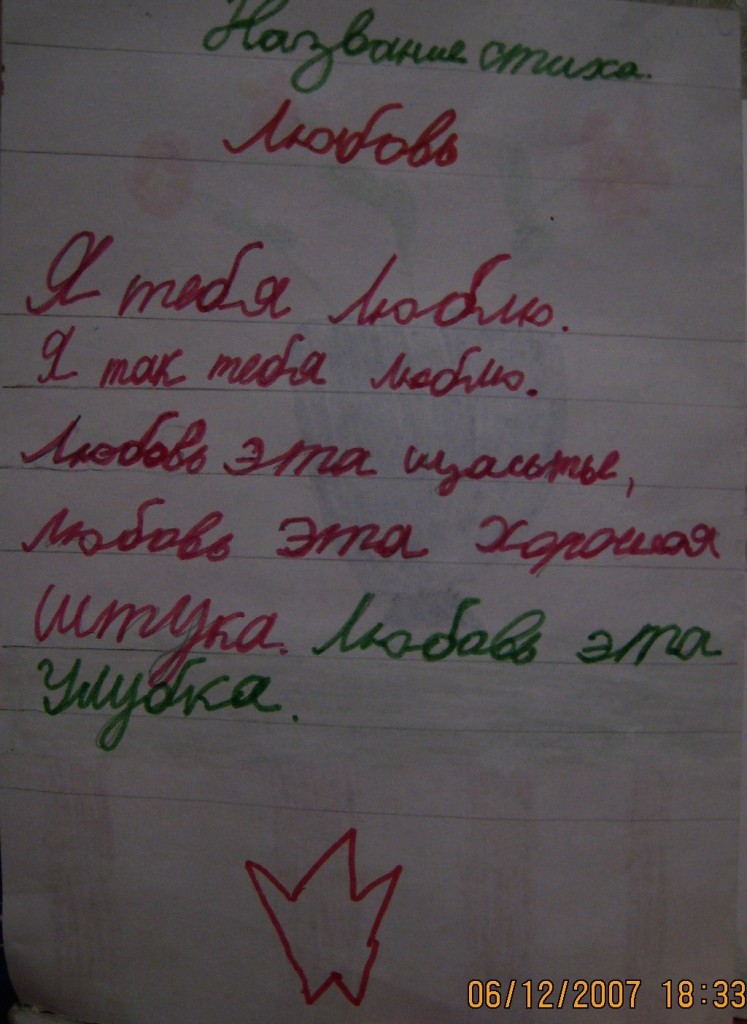 Название стиха.
Любовь
Я тебя люблю.
Я так тебя люблю.
Любовь эта щасьтье,
Любовь эта хорошая
штука. Любавь эта
улубка.
06/12/2007 18:33